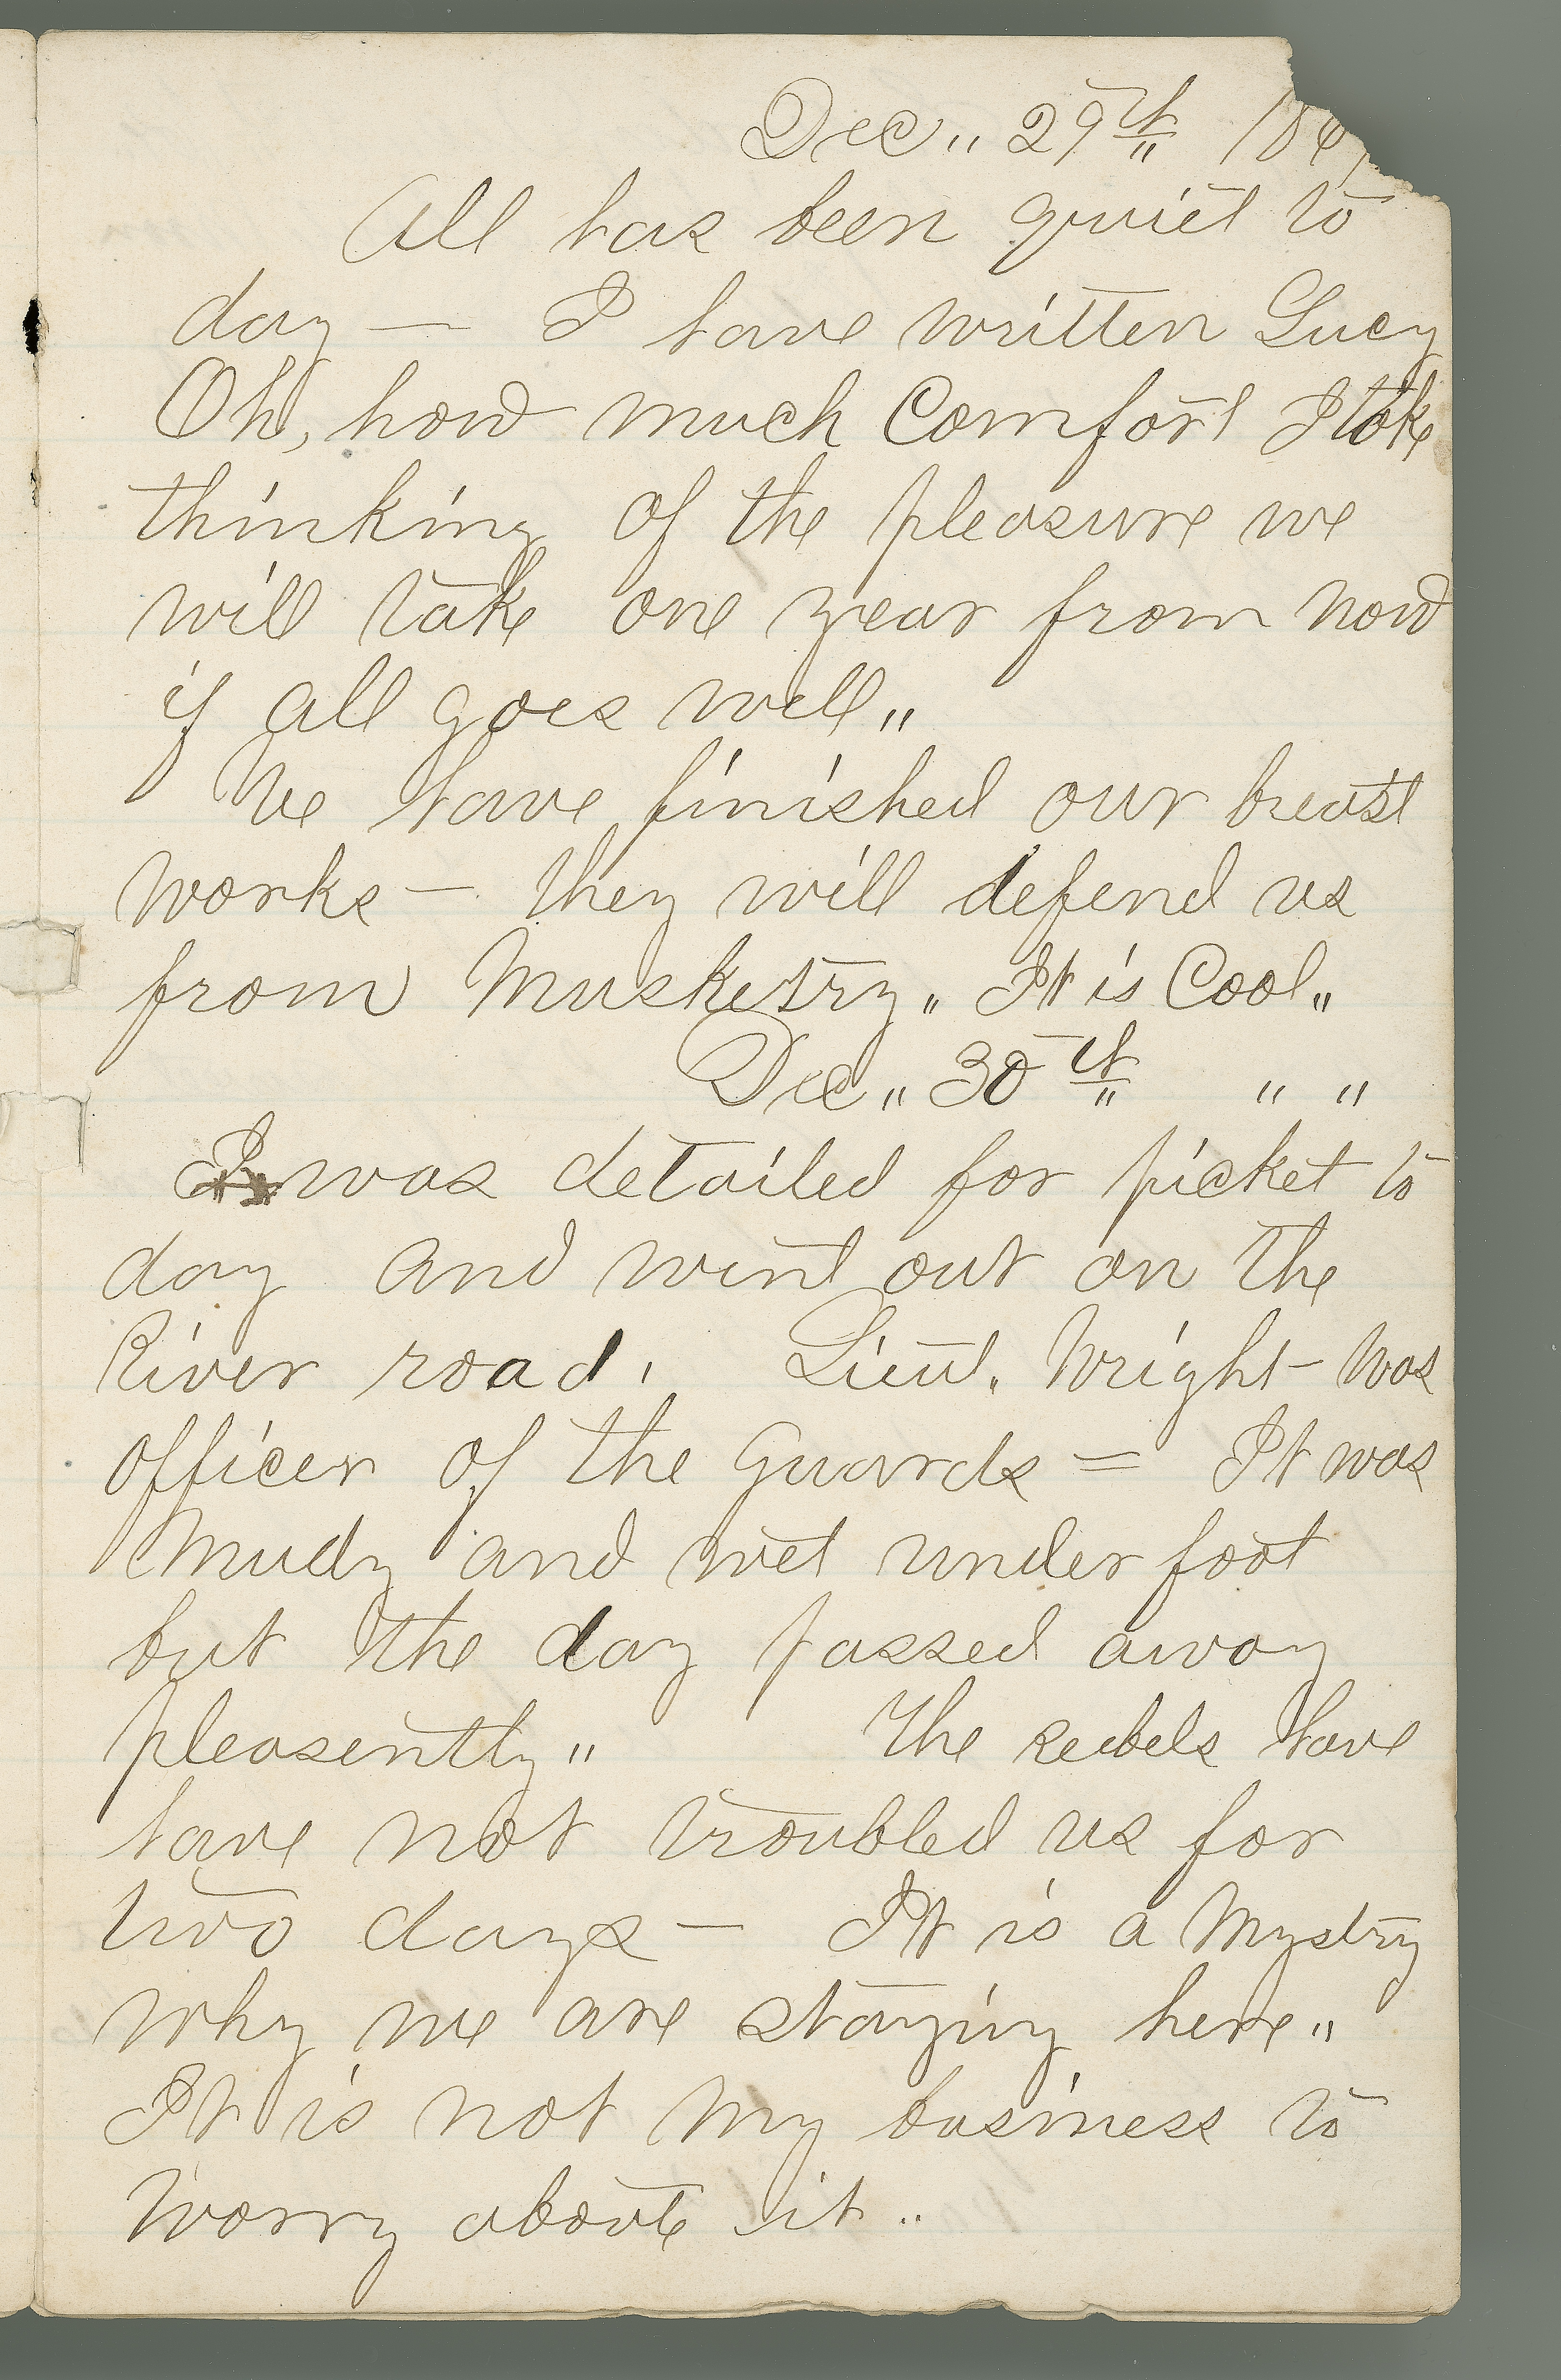 Dec,, 29th 186
All has been quiet to
day — I have written Lucy
Oh, how much Comfort I take
thinking of the pleasure we
will take one year from now
if all goes well,,
We have finished our breast
works — they will defend us
from Musketry,, It is Cool,,
Dec,, 30th ,, ,,
I was detailed for picket to
day and went out on the
River road. Lieut. Wright was
officer of the Guards = It was
Mudy and wet under foot
but the day passed away
pleasently,, The reebels have
have not troubled us for
two days — It is a Mystry
why we are staying here,,
It is not My business to
Worry aboute it ..